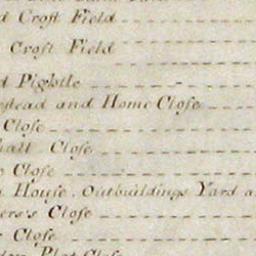 Croft Field
Croft Field
Pightle
and Home Close
Close
Close
Close
House, Outbuildings Yard
Close
Close
Plot Close